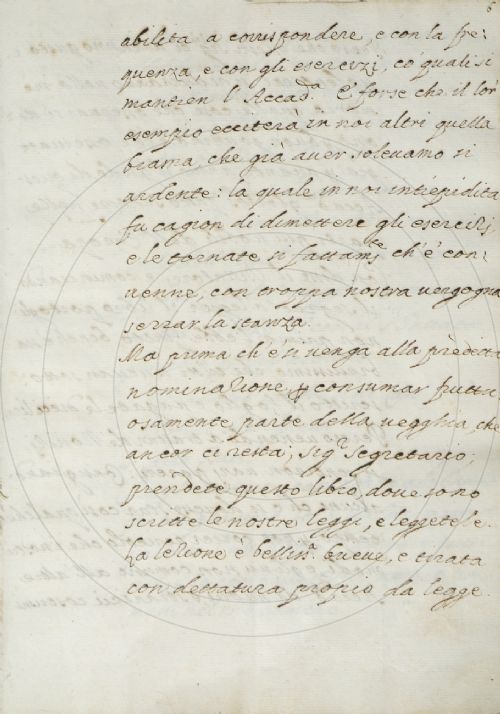 6
abilita a corrispondere, e con la fre-
quenza, e con gli esercizi, co' quali si
mantien l'Accad.a E forse che il lor
esempio ecciterà in noi altri quella
brama, che già aver solevamo sì
ardente: la quale in noi intiepidita
fu cagion di dimettere gli esercizi,
e le tornate sì fattam.te ch'è con-
uenne, con troppa nostra vergogna
serrar la stanza.
Ma prima ch'e' si venga alla predetta
nominazione p consumar frutta
osamente parte della vegghia, che
ancor ci resta, Sig.r Segretario,
prendete questo libro, dove sono
scritte le nostre leggi, e leggetele.
La lezione è bellin.a breve, e tirata
con dettatura propio da legge.